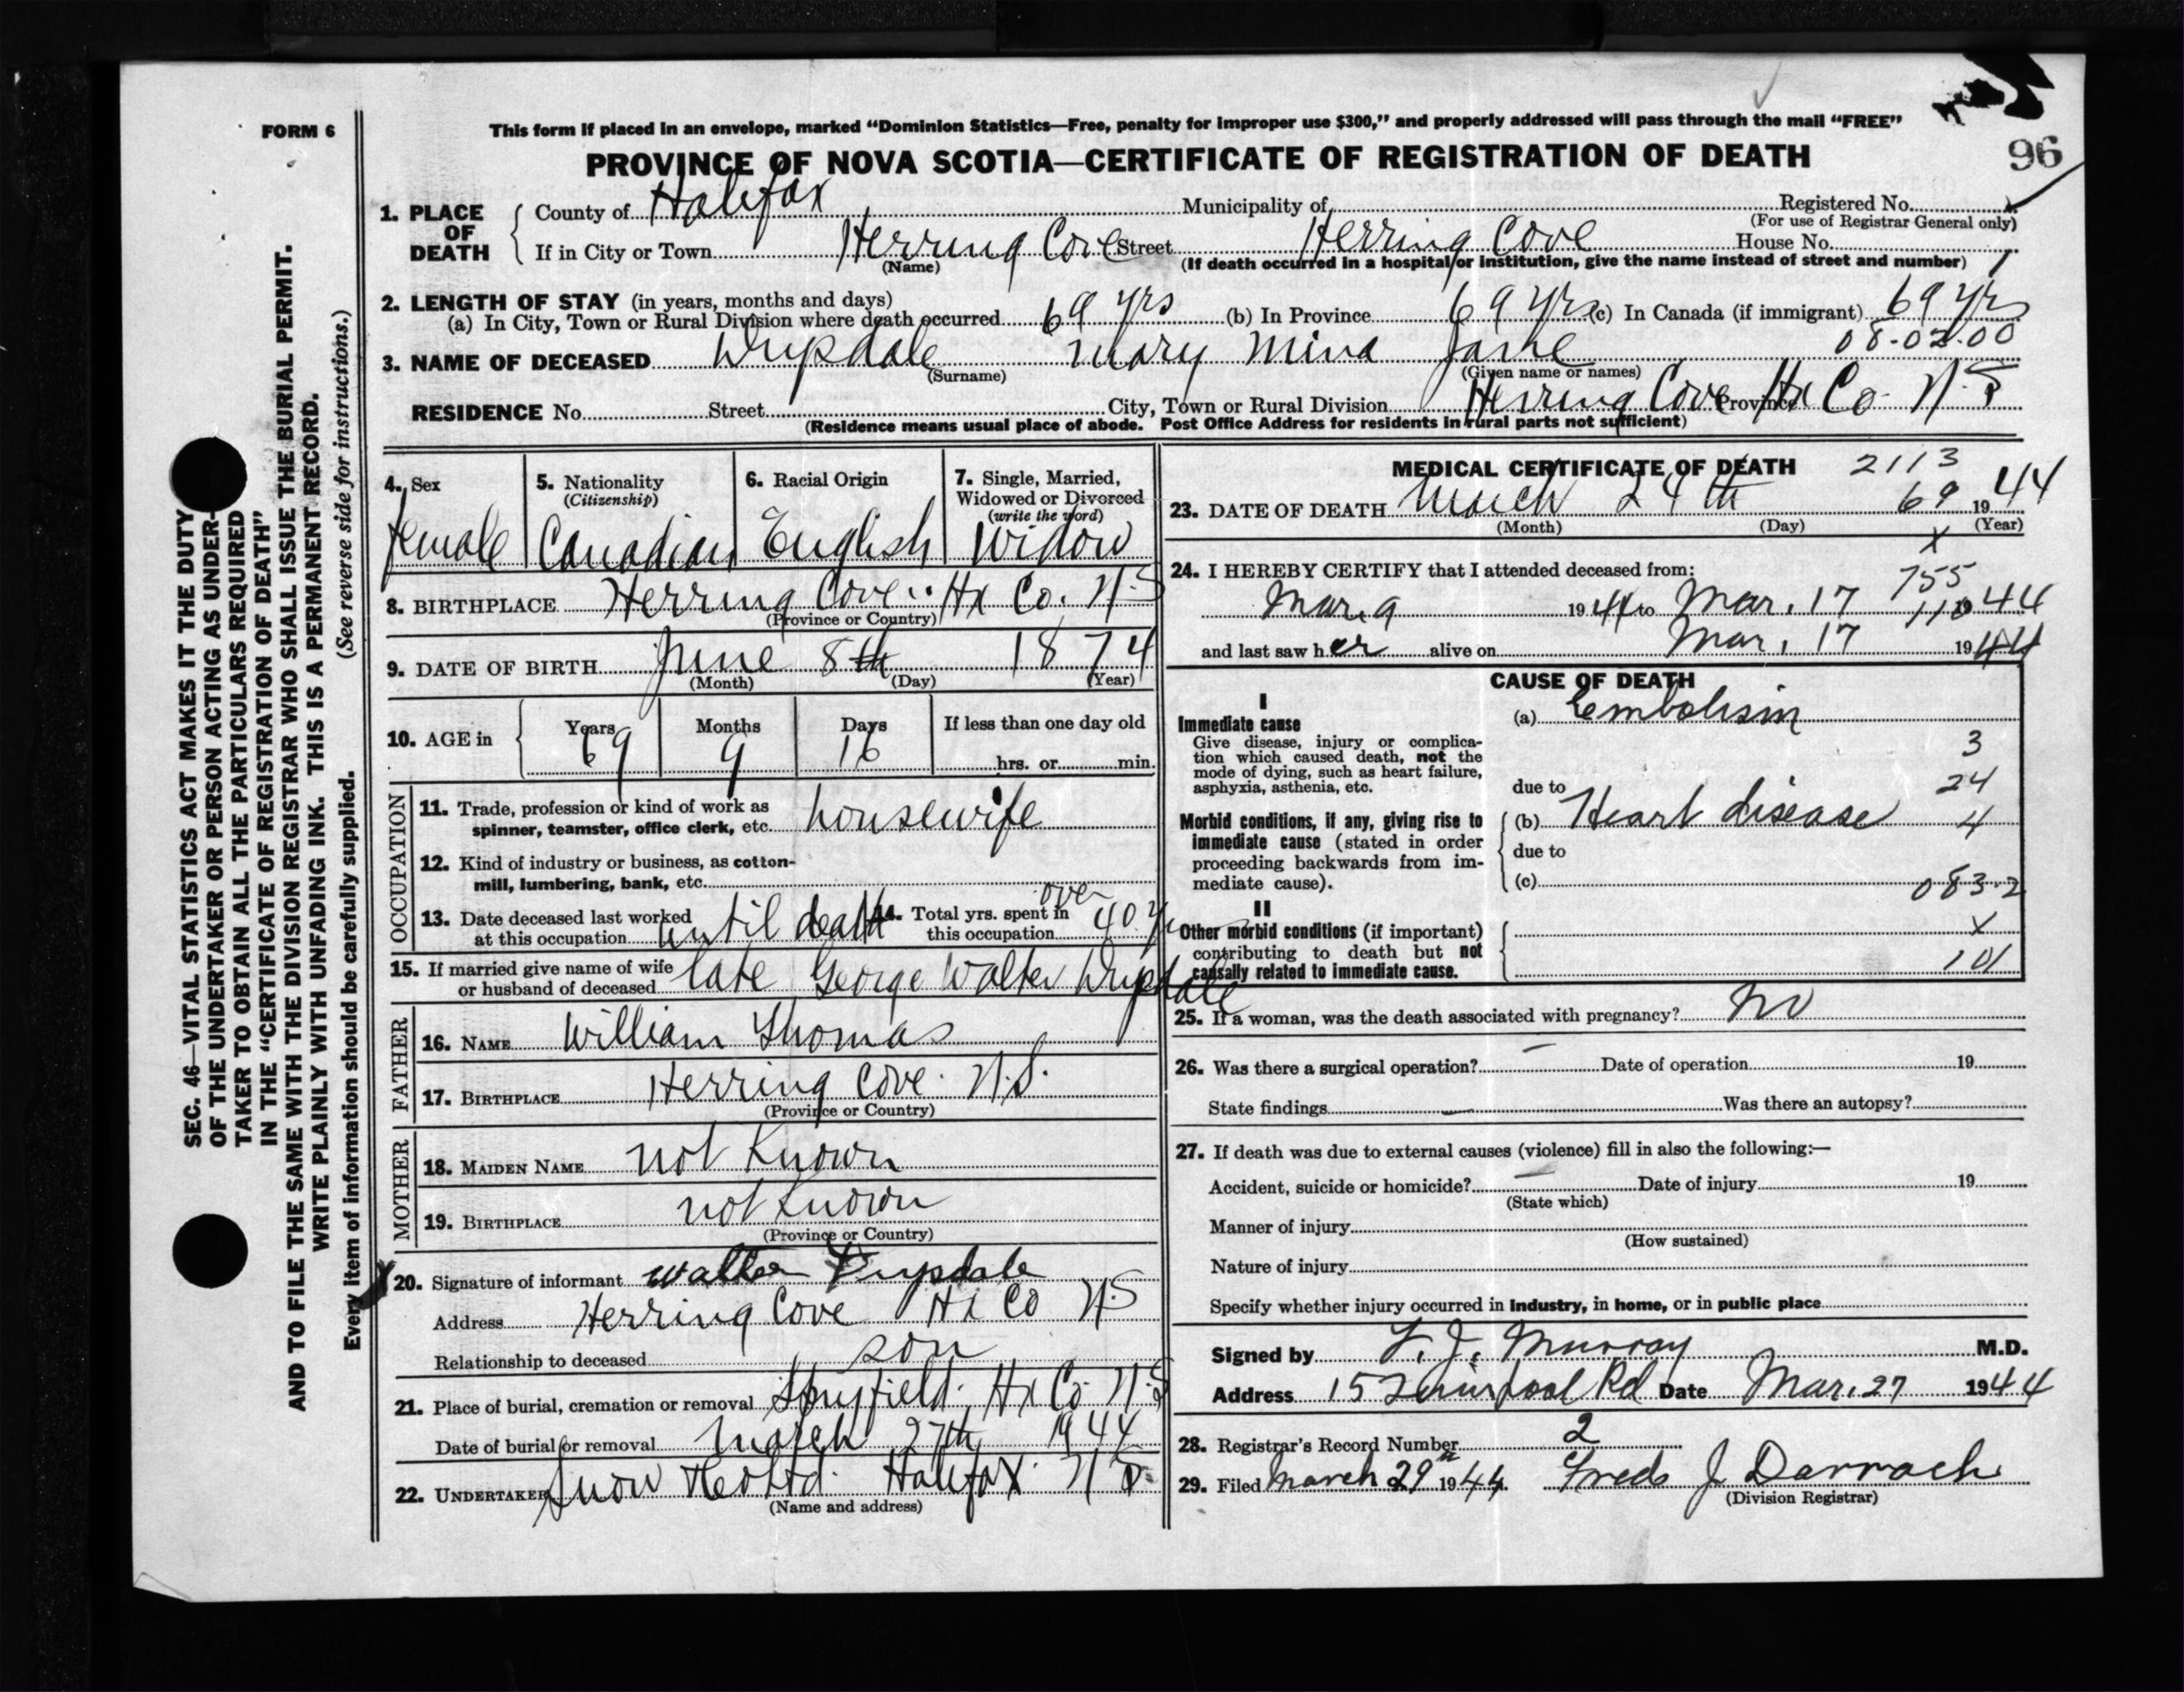 FORM 6
This form if placed in an envelope, marked “Dominion Statistics—Free, penalty for improper use $300,” and properly addressed will pass through the mail “FREE”
96
PROVINCE OF NOVA SCOTIA—CERTIFICATE OF REGISTRATION OF DEATH
1. PLACE OF DEATH
County of Halifax Municipality of Registered No.
(For use of Registrar General only)
If in City or Town Herring Cove Street Herring Cove House No.
(Name) (If death occurred in a hospital or institution, give the name instead of street and number)
2. LENGTH OF STAY (in years, months and days)
(a) In City, Town or Rural Division where death occurred 69 yrs (b) In Province 69 yrs (c) In Canada (if immigrant) 69 yrs
08-02.00
3. NAME OF DECEASED Drysdale Mary Mina Jane
(Surname) (Given name or names)
RESIDENCE No. Street City, Town or Rural Division Herring Cove Province Hx Co N.S
(Residence means usual place of abode. Post Office Address for residents in rural parts not sufficient)
4. Sex
female
5. Nationality
(Citizenship)
Canadian
6. Racial Origin
English
7. Single, Married,
Widowed or Divorced
(write the word)
Widow
8. BIRTHPLACE Herring Cove Hx Co. N.S
(Province or Country)
9. DATE OF BIRTH June 8th 1874
(Month) (Day) (Year)
10. AGE in
Years Months Days If less than one day old
69 9 16 hrs. or min.
OCCUPATION
11. Trade, profession or kind of work as
spinner, teamster, office clerk, etc. housewife
12. Kind of industry or business, as cotton-
mill, lumbering, bank, etc.
13. Date deceased last worked
at this occupation until death
14. Total yrs. spent in
this occupation over 40 yr
15. If married give name of wife
or husband of deceased late George Walter Drysdale
FATHER
16. NAME William Thomas
17. BIRTHPLACE Herring Cove. N.S.
(Province or Country)
MOTHER
18. MAIDEN NAME not Known
19. BIRTHPLACE not Known
(Province or Country)
20. Signature of informant Walter Drysdale
Address Herring Cove Hx Co N.S
Relationship to deceased son
21. Place of burial, cremation or removal Spryfield. Hx Co. N.S
Date of burial or removal March 27th 1944
22. UNDERTAKER Snow & Co Ltd. Halifax N.S.
(Name and address)
MEDICAL CERTIFICATE OF DEATH 2113
23. DATE OF DEATH March 24th 69 1944
(Month) (Day) (Year)
X
24. I HEREBY CERTIFY that I attended deceased from:
755
Mar. 9 1944 to Mar. 17 1944
110
and last saw her alive on Mar. 17 1944
CAUSE OF DEATH
I
Immediate cause
Give disease, injury or complica-
tion which caused death, not the
mode of dying, such as heart failure,
asphyxia, asthenia, etc.
(a) Embolism
3
due to 24
Morbid conditions, if any, giving rise to
immediate cause (stated in order
proceeding backwards from im-
mediate cause).
(b) Heart disease 4
due to
(c) 083.2
II
Other morbid conditions (if important)
contributing to death but not
causally related to immediate cause.
X
101
25. If a woman, was the death associated with pregnancy? No
26. Was there a surgical operation? — Date of operation 19
State findings — Was there an autopsy?
27. If death was due to external causes (violence) fill in also the following:—
Accident, suicide or homicide? — Date of injury 19
(State which)
Manner of injury
(How sustained)
Nature of injury
Specify whether injury occurred in industry, in home, or in public place
Signed by Murray M.D.
Address Rd Date Mar. 27 1944
28. Registrar's Record Number 2
29. Filed March 29 1944. Freds J Darrach
(Division Registrar)
SEC. 46—VITAL STATISTICS ACT MAKES IT THE DUTY
OF THE UNDERTAKER OR PERSON ACTING AS UNDER-
TAKER TO OBTAIN ALL THE PARTICULARS REQUIRED
IN THE “CERTIFICATE OF REGISTRATION OF DEATH”
AND TO FILE THE SAME WITH THE DIVISION REGISTRAR WHO SHALL ISSUE THE BURIAL PERMIT.
WRITE PLAINLY WITH UNFADING INK. THIS IS A PERMANENT RECORD.
Every item of information should be carefully supplied. (See reverse side for instructions.)